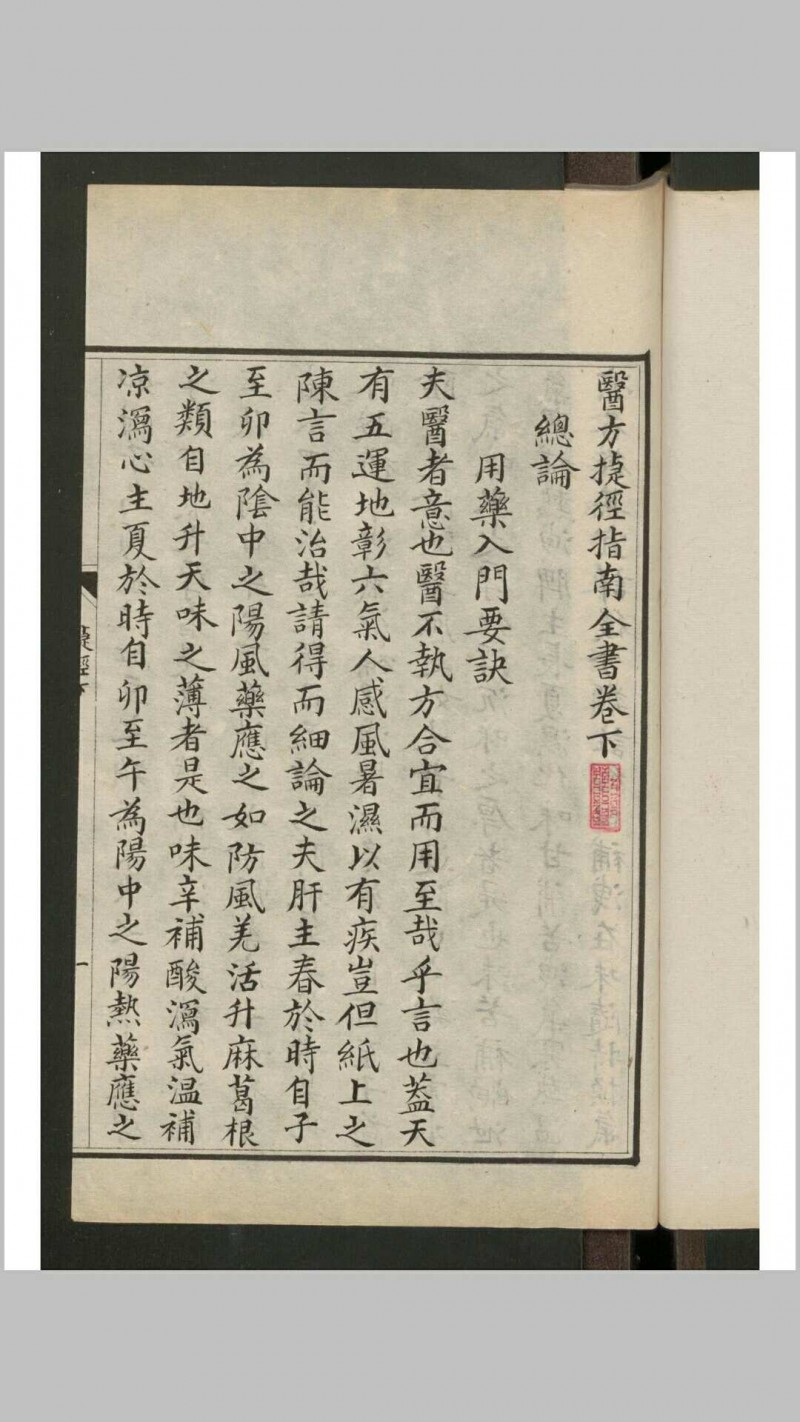 醫方捷徑指南全書卷下
總論
用藥入門要訣
夫醫者意也醫不執方合宜而用至哉乎言也葢天
有五運地彰六氣人感風暑濕以有疾豈但紙上之
陳言而能治哉請得而細論之夫肝主春於時自子
至卯為陰中之陽風藥應之如防風羌活升麻葛根
之類自地升天味之薄者是也味辛補酸瀉氣温補
凉瀉心主夏於時自卯至午為陽中之陽熱藥應之
捷徑下
一